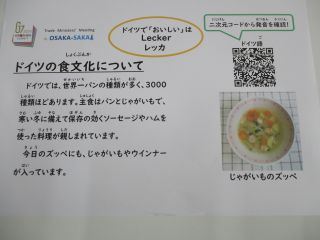 Trade Ministers' Meeting
in OSAKA-SAKAI
ドイツで「おいしい」は
Lecker
レッカ
二次元コードから発音を確認!
ドイツ語
ドイツの食文化について
ドイツでは、世界一パンの種類が多く、3000
種類ほどあります。主食はパンとじゃがいもで、
寒い冬に備えて保存の効くソーセージやハムを
使った料理が親しまれています。
今日のズッペにも、じゃがいもやウインナー
が入っています。
じゃがいものズッペ